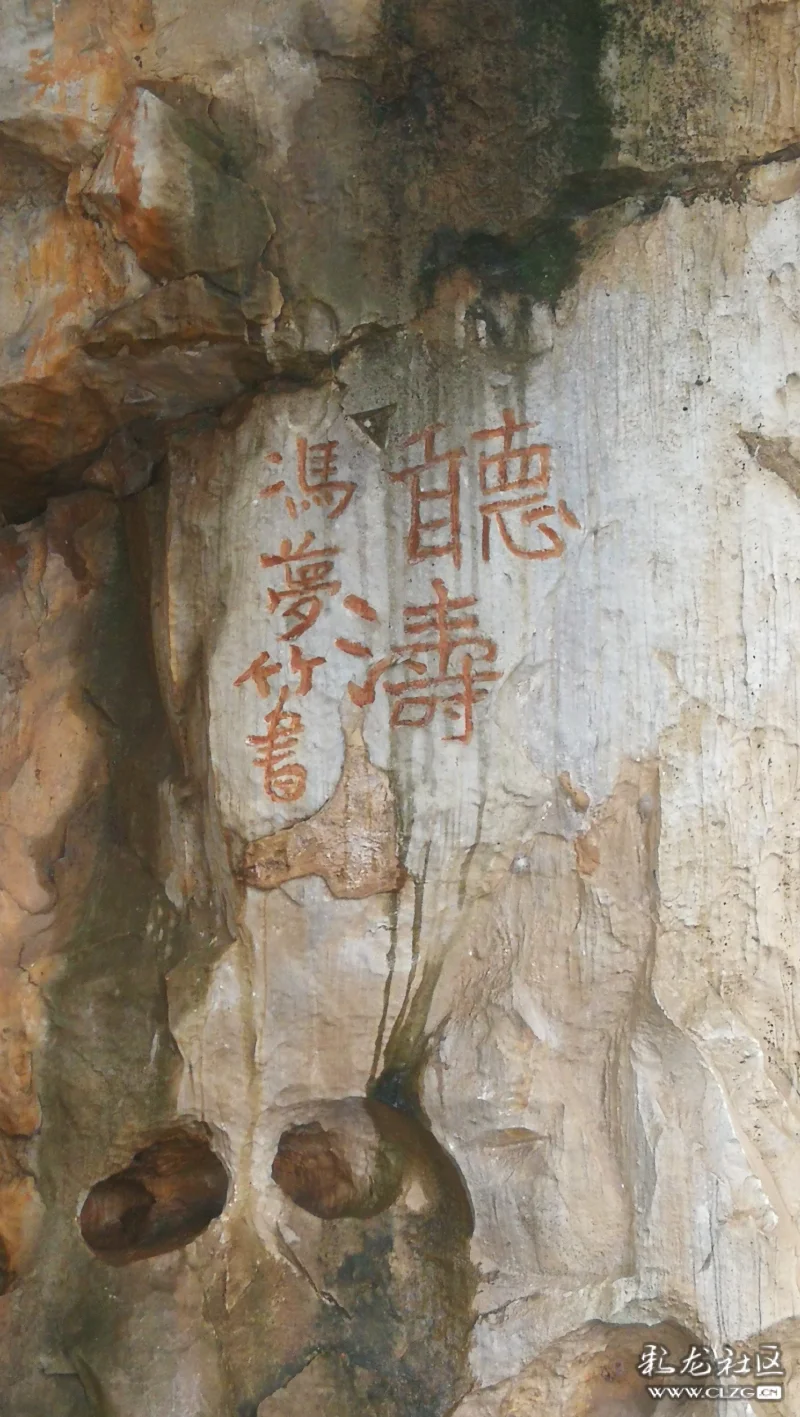 聽濤
馮夢竹書
彩龙社区
WWW.CLZG.CN